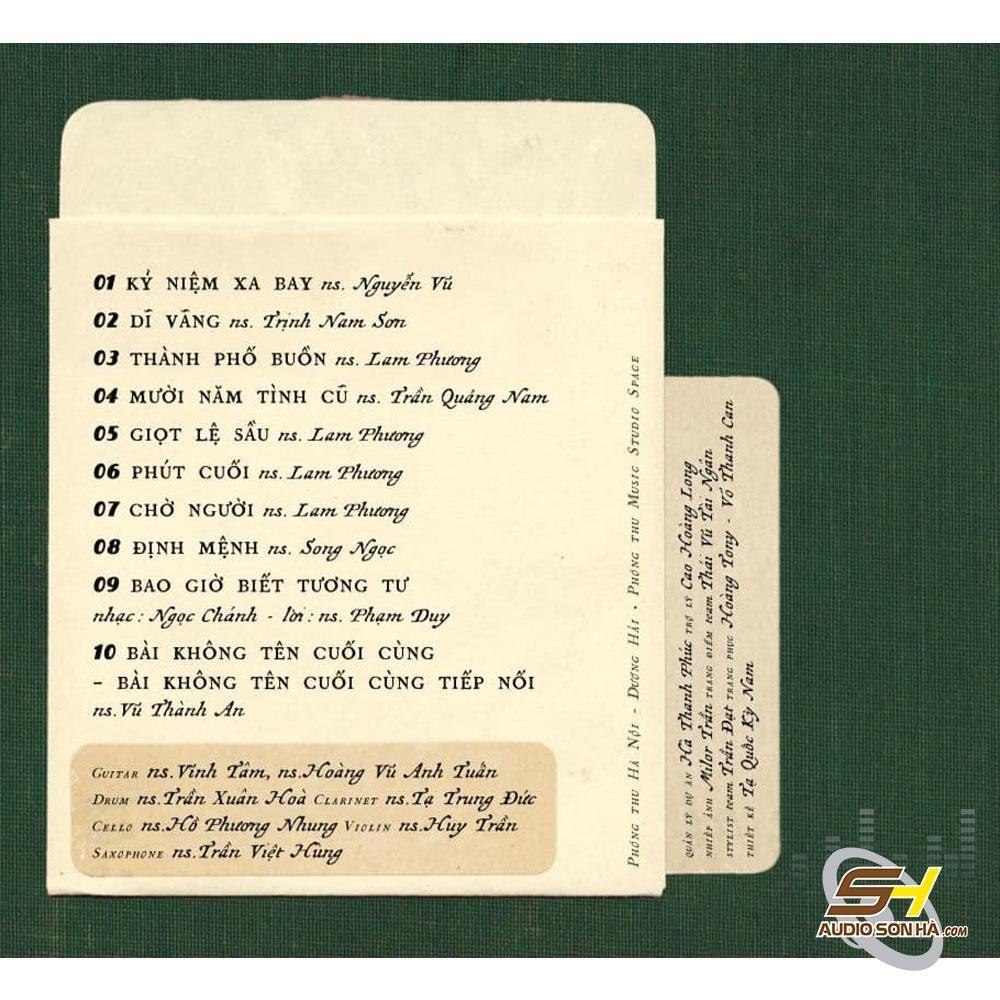 01 KỶ NIỆM XA BAY ns. Nguyễn Vũ
02 DĨ VÃNG ns. Trịnh Nam Sơn
03 THÀNH PHỐ BUỒN ns. Lam Phương
04 MƯỜI NĂM TÌNH CŨ ns. Trần Quảng Nam
05 GIỌT LỆ SẦU ns. Lam Phương
06 PHÚT CUỐI ns. Lam Phương
07 CHỜ NGƯỜI ns. Lam Phương
08 ĐỊNH MỆNH ns. Song Ngọc
09 BAO GIỜ BIẾT TƯƠNG TƯ
nhạc: Ngọc Chánh - lời: ns. Phạm Duy
10 BÀI KHÔNG TÊN CUỐI CÙNG
- BÀI KHÔNG TÊN CUỐI CÙNG TIẾP NỐI
ns. Vũ Thành An
GUITAR ns. Vĩnh Tâm, ns. Hoàng Vũ Anh Tuấn
DRUM ns. Trần Xuân Hoà CLARINET ns. Tạ Trung Đức
CELLO ns. Hồ Phương Nhung VIOLIN ns. Huy Trần
SAXOPHONE ns. Trần Việt Hùng
PHÒNG THU HÀ NỘI - DƯƠNG HẢI • PHÒNG THU MUSIC STUDIO SPACE
QUẢN LÝ DỰ ÁN Hà Thanh Phúc TRỢ LÝ Cao Hoàng Long
NHIẾP ẢNH Milor Trần TRANG ĐIỂM team Thái Vũ Tài Ngân
STYLIST team Trần Đạt TRANG PHỤC Hoàng Tony - Võ Thanh Can
THIẾT KẾ Tạ Quốc Kỳ Nam
SH
AUDIO SƠN HÀ.COM